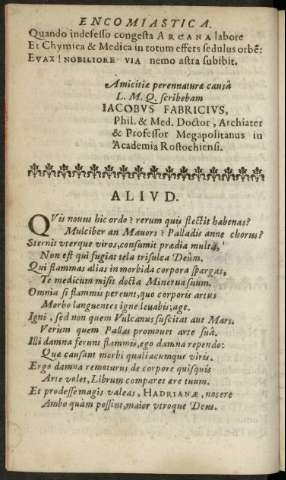 ENCOMIASTICA.
Quando indefesso congesta ARCANA labore
Et Chymica & Medica in totum effers sedulus orbē:
EVAX! NOBILIORE VIA nemo astra subibit.
Amicitiæ perennaturæ causâ
L. M. Q. scribebam
IACOBVS FABRICIVS,
Phil. & Med. Doctor, Archiater
& Professor Megapolitanus in
Academia Rostochiensi.
ALIVD.
QVis nouus hic ordo? rerum quis flectit habenas?
Mulciber an Mauors? Palladis anne chorus?
Sternit vterque viros, consumit prædia multa,
Non est qui fugiat tela trisulca Deûm.
Qui flammas alias in morbida corpora spargas,
Te medicum misit docta Minerua suum.
Omnia si flammis pereunt, quo corporis artus
Morbo languentes igne leuabis; age.
Igni, sed non quem Vulcanus suscitat aut Mars,
Verùm quem Pallas promouet arte suâ.
Illi damna ferunt flammis, ego damna rependo:
Quæ causant morbi qualiacumque viris.
Ergo damna remoturus de corpore quisquis
Arte volet, Librum comparet ære tuum.
Et prodesse magis valeas, HADRIANE, nocere
Ambo quàm possint, maior vtroque Deus.